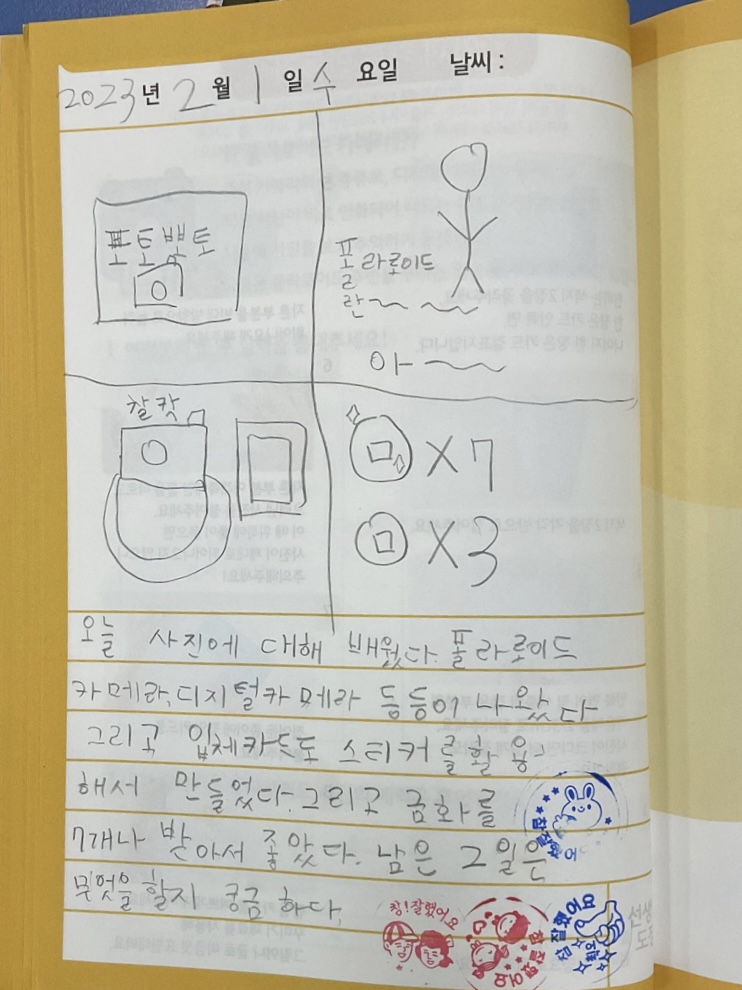 2023년 2월 1일 수요일 날씨 :
포토뽀토
폴라로이드
란~ ~
아~
찰칵
X7
X3
오늘 사진에 대해 배웠다. 폴라로이드
카메라, 디지털카메라 등등이 나왔다
그리고 입체카드도 스티커를 활용
해서 만들었다. 그리고 금화를
7개나 받아서 좋았다. 남은 2일은
무엇을 할지 궁금하다.
참!잘했어요
참 잘했어요